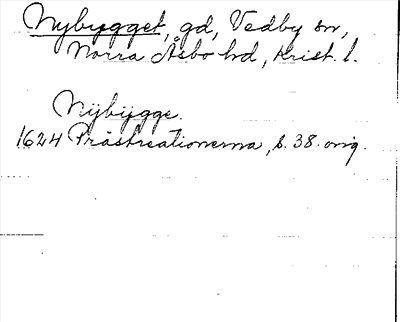 Nybygget, gd, Vedby sn,
Norra Åsbo hd, Krist. l.
Nÿbÿgge.
1624 Prästrelationerna, s. 38. orig.